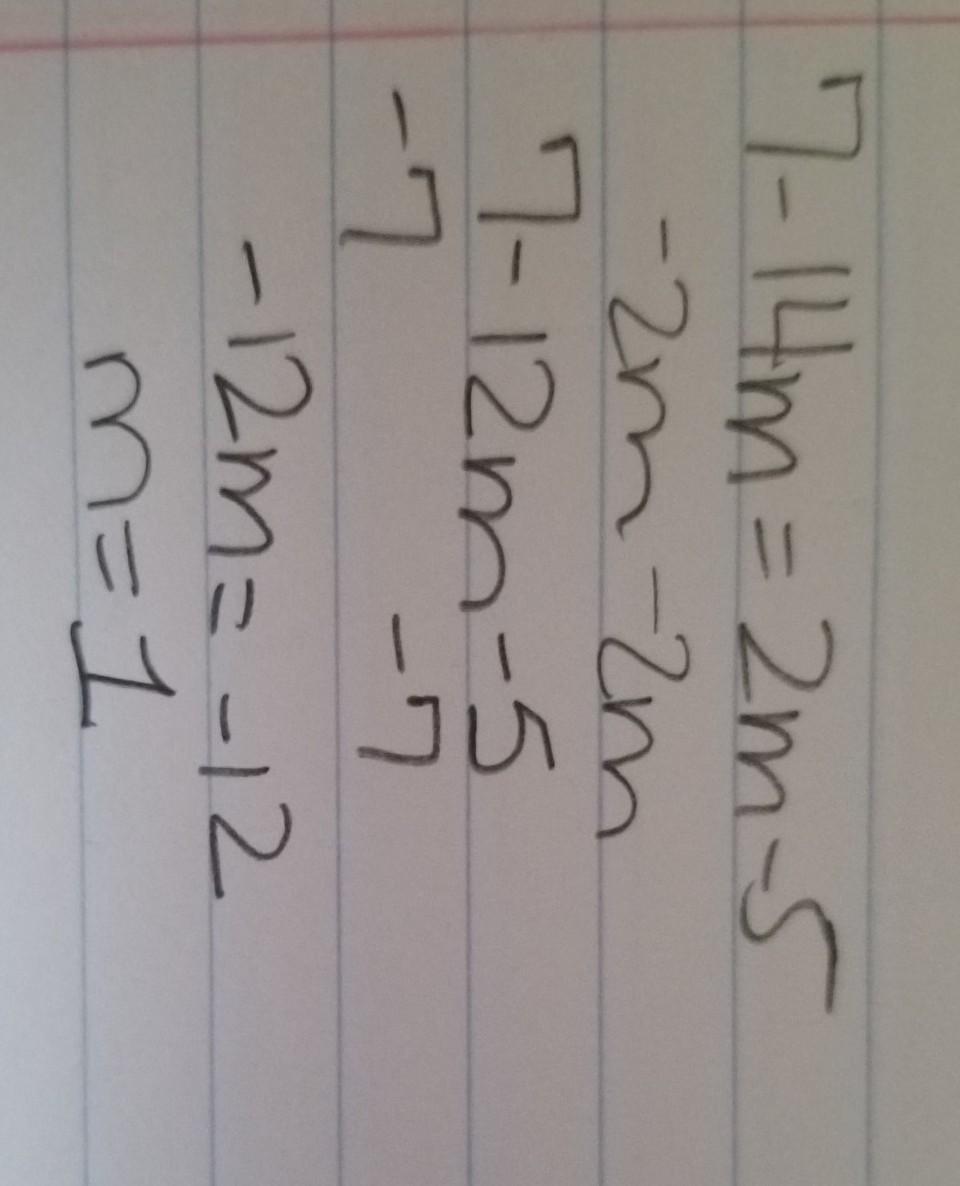 7 - 14m = 2m - 5
-2m -2m
7 - 12m - 5
-7 -7
-12m = -12
m = 1